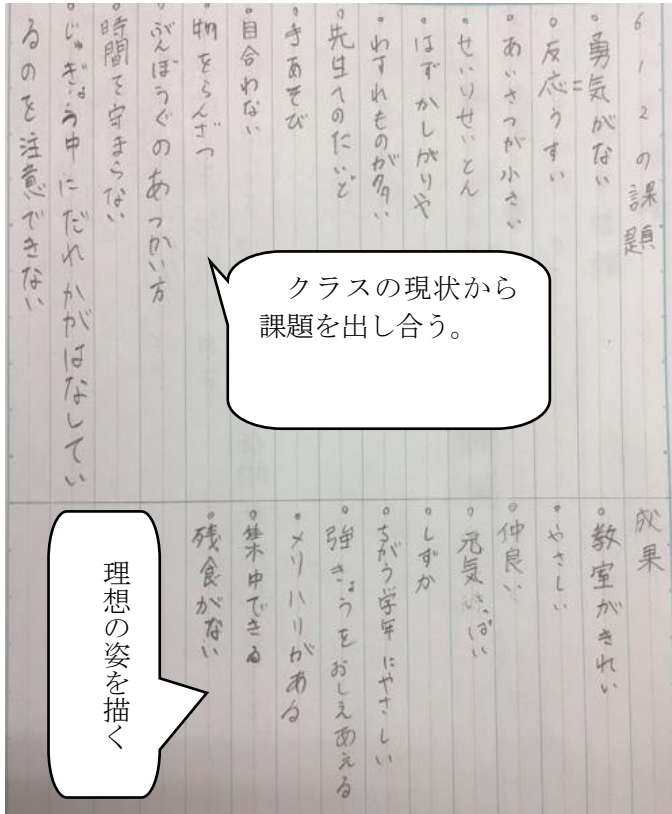 612の課題
・勇気がない
・反応うすい
・あいさつが小さい
・せいりせいとん
・はずかしがりや
・わすれものが多い
・先生へのたいど
・手あそび
・目合わない
・物をらんざつ
・ぶんぼうぐのあつかい方
・時間を守まらない
・じゅぎょう中にだれかがはなしてい
るのを注意できない
クラスの現状から
課題を出し合う。
成果
・教室がきれい
・やさしい
・仲良い
・元気いっぱい
・しずか
・ちがう学年にやさしい
・強きょうをおしえあえる
・メリハリがある
・集中できる
・残食がない
理想の姿を描く